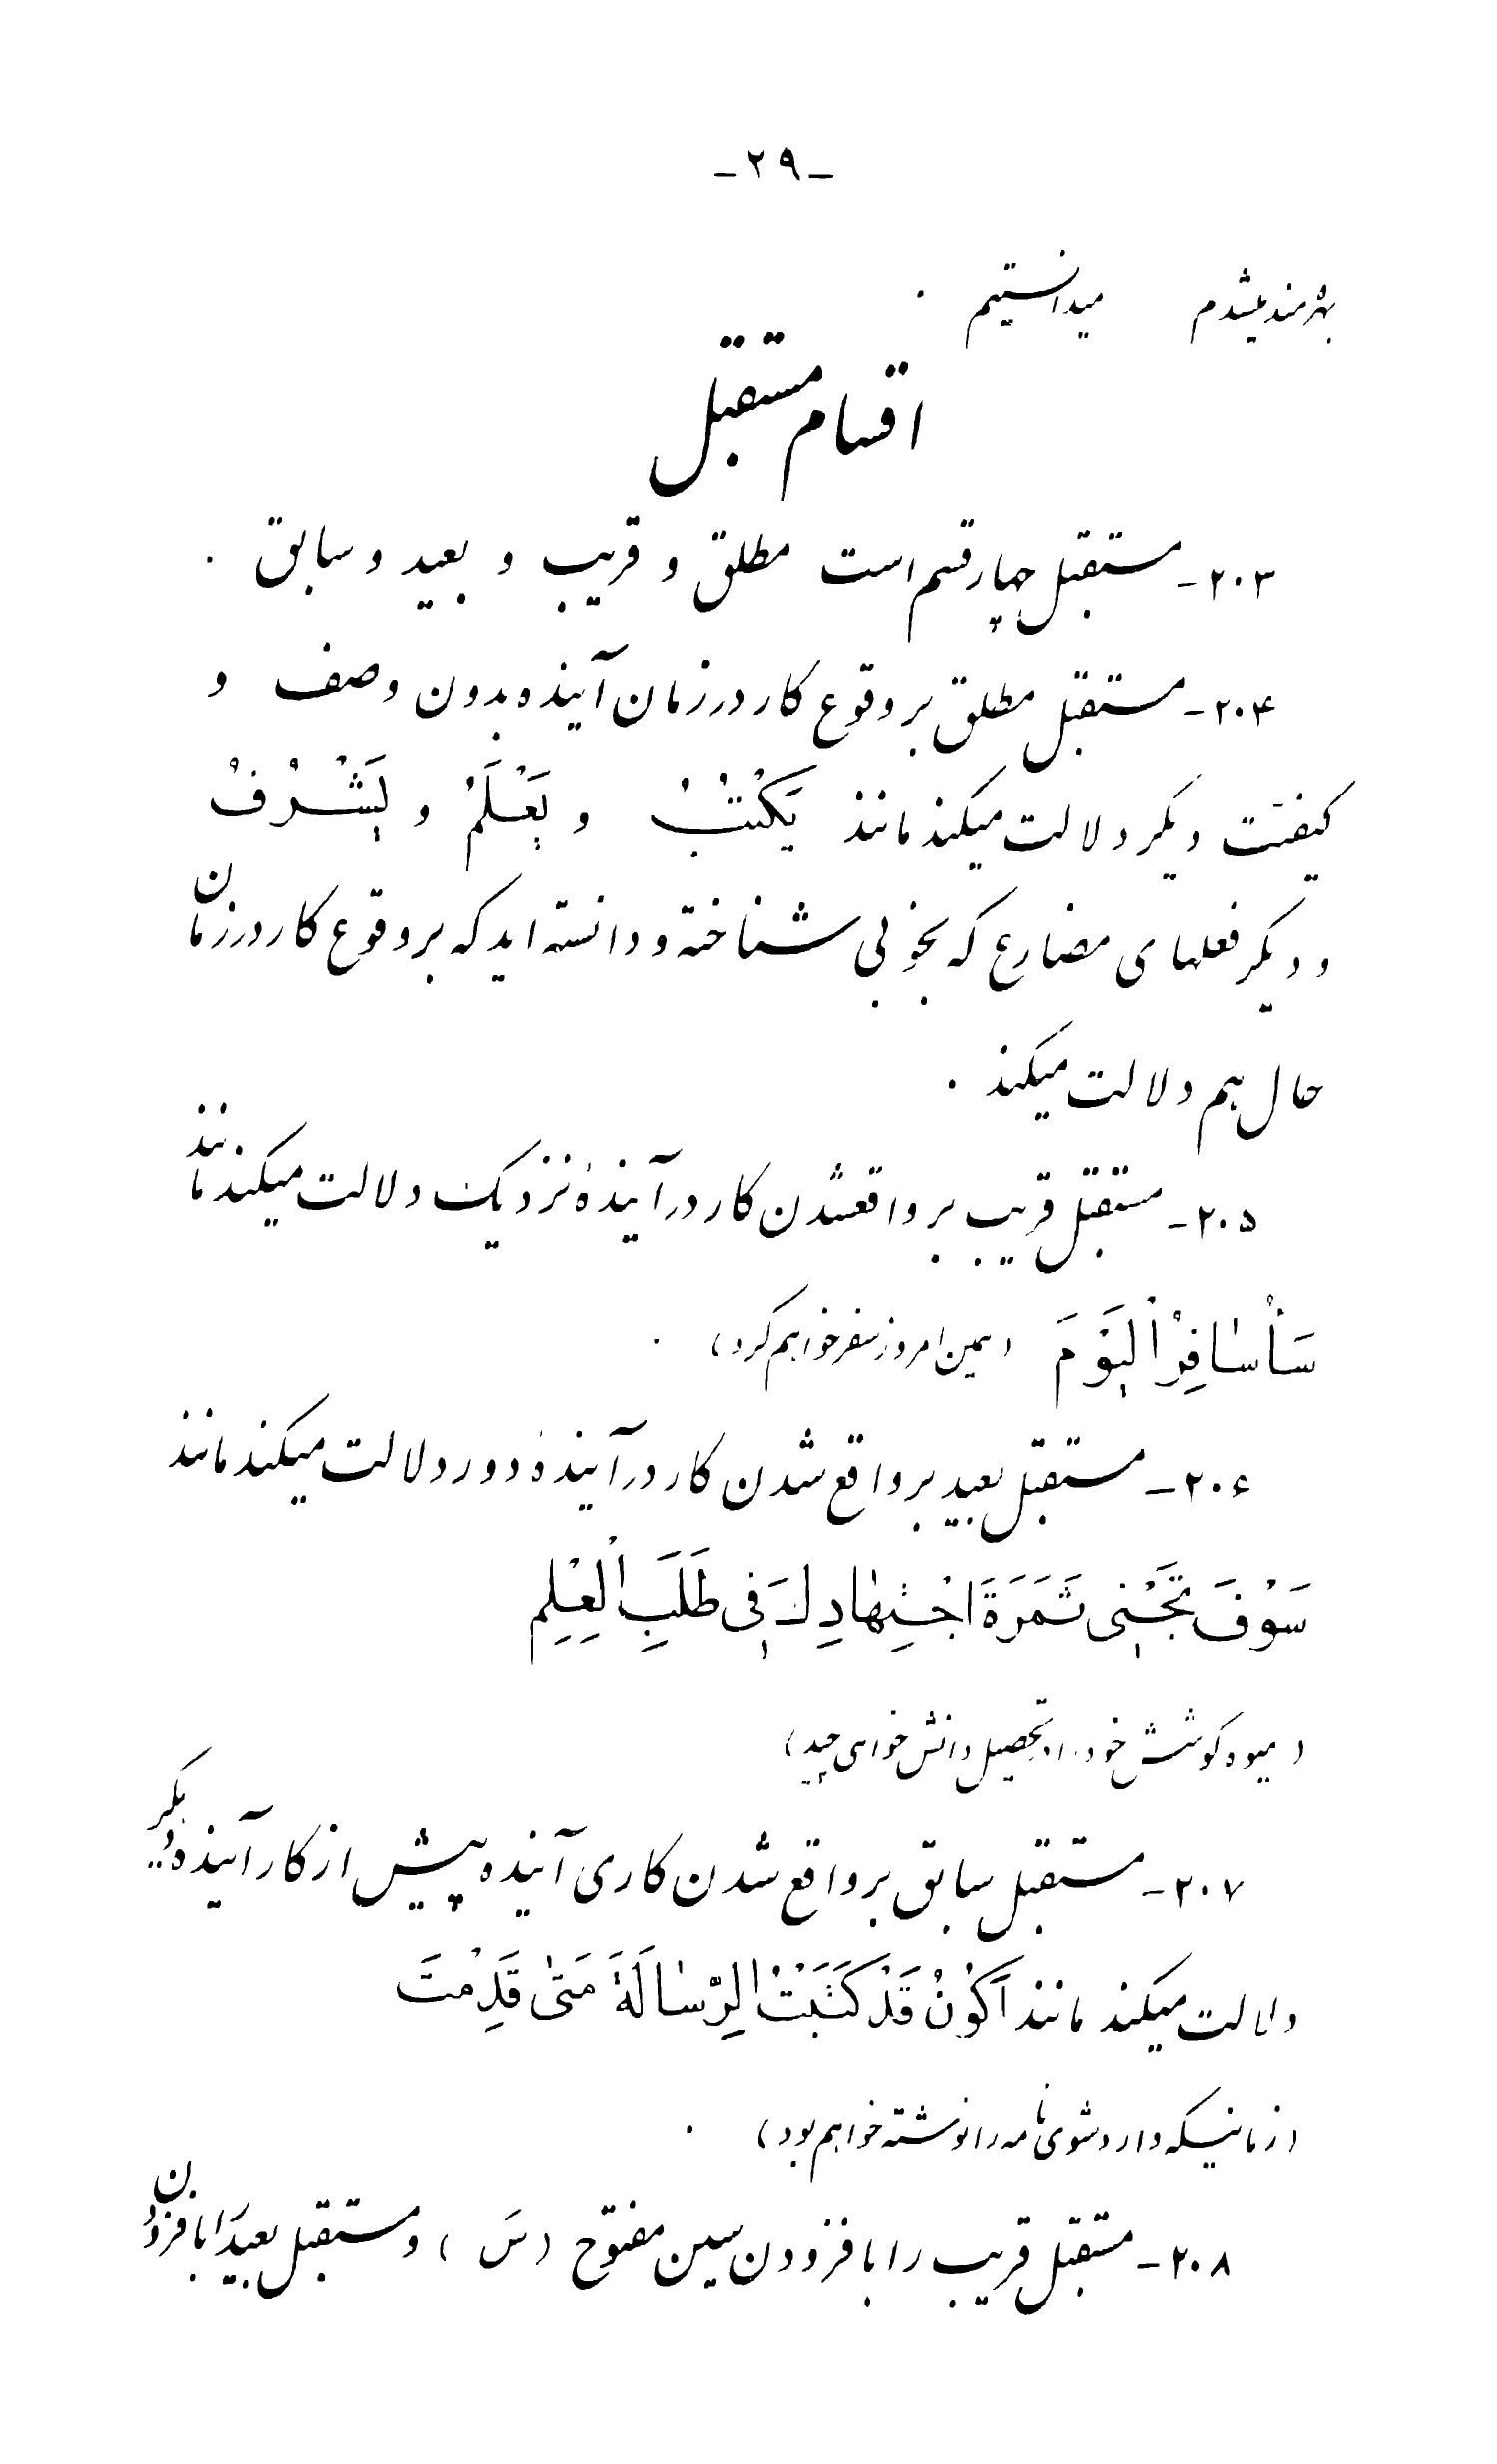 -۲۹-
بهره‌مند میشدم میدانستیم .
اقسام مستقبل
۲۰۳- مستقبل چهار قسم است مطلق و قریب و بعید و سابق .
۲۰۴- مستقبل مطلق بر وقوع کار در زمان آینده بدون وصف و
کیفیت دیگر دلالت میکند مانند یَکْتُبُ و یَعْلَمُ و یَشْرُفُ
و دیگر فعلهای مضارع که بخوبی شناخته و دانسته‌اید که بر وقوع کار در زمان
حال هم دلالت میکند .
۲۰۵- مستقبل قریب بر واقعشدن کار در آیندهٔ نزدیک دلالت میکند مانند
سَأُسٰافِرُ الْیَوْمَ (همین امروز سفر خواهم کرد) .
۲۰۶- مستقبل بعید بر واقع شدن کار در آیندهٔ دور دلالت میکند مانند
سَوْفَ تَجْنِی ثَمَرَةَ اجْتِهٰادِكَ فِی طَلَبِ الْعِلْمِ
(میوه کوشش خود را در تحصیل دانش خواهی چید)
۲۰۷- مستقبل سابق بر واقع شدن کاری آینده پیش از کار آیندهٔ دیگر
دلالت میکند مانند اَکُوْنُ قَدْ کَتَبْتُ الرِّسٰالَةَ مَتیٰ قَدِمْتَ
(زمانیکه وارد شوی نامه را نوشته خواهم بود) .
۲۰۸- مستقبل قریب را با فزودن سین مفتوح (سَ) و مستقبل بعید را با فزودن